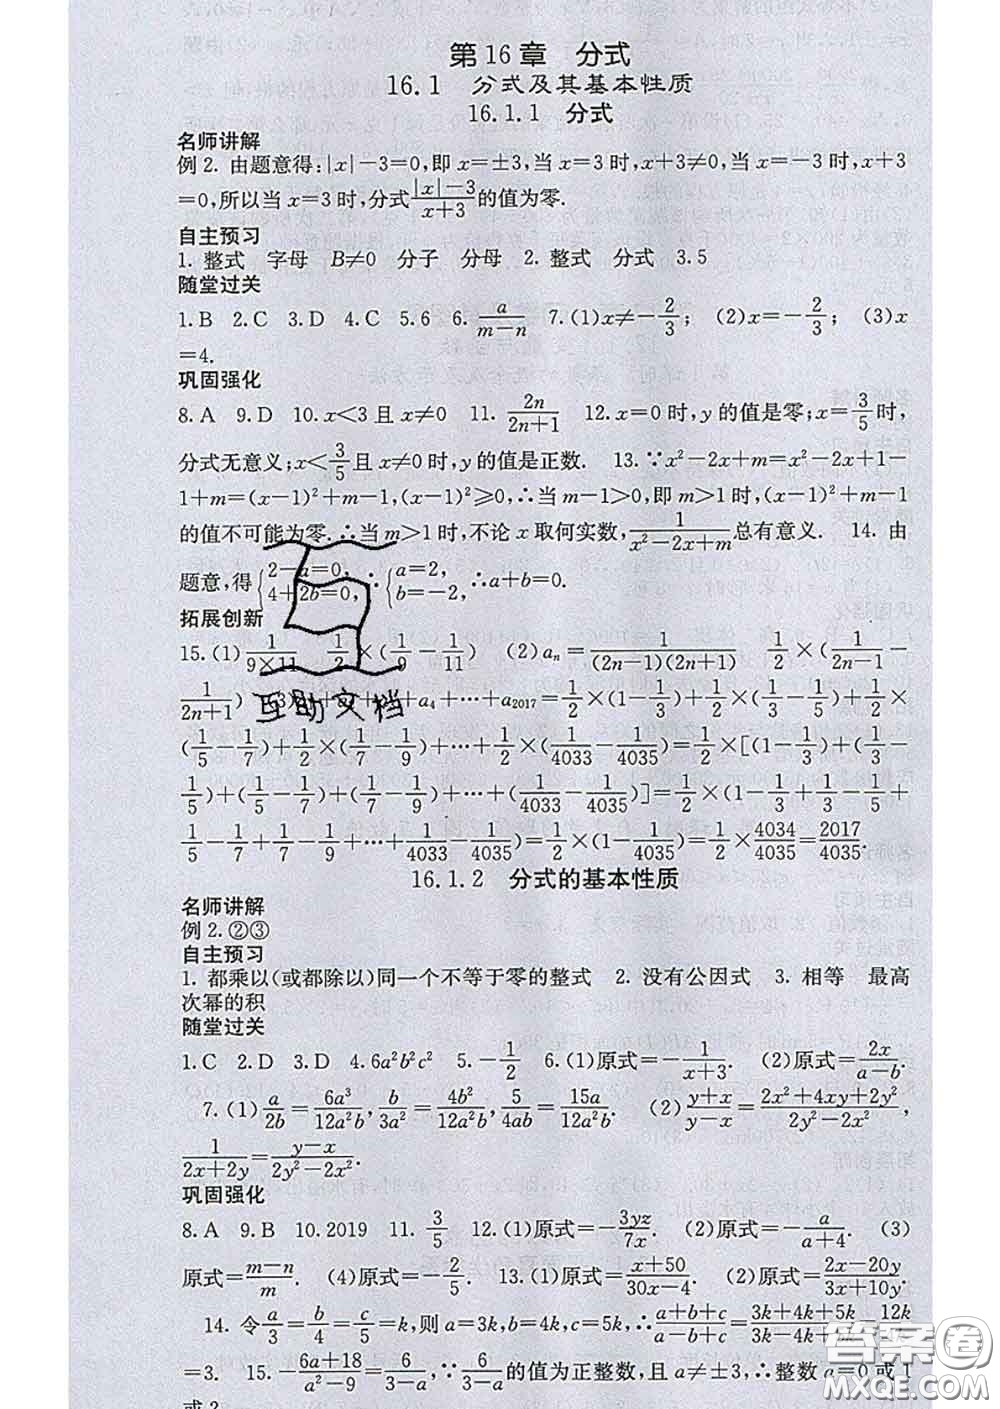 第16章 分式
16.1 分式及其基本性质
16.1.1 分式
名师讲解
例2. 由题意得:|x|-3=0,即x=±3,当x=3时,x+3≠0,当x=-3时,x+3
=0,所以当x=3时,分式(|x|-3)/(x+3)的值为零.
自主预习
1. 整式 字母 B≠0 分子 分母 2. 整式 分式 3.5
随堂过关
1.B 2.C 3.D 4.C 5.6 6. a/(m-n) 7.(1)x≠-2/3; (2)x=-2/3; (3)x
=4.
巩固强化
8.A 9.D 10.x<3且x≠0 11. 2n/(2n+1) 12.x=0时,y的值是零;x=3/5时,
分式无意义;x<3/5且x≠0时,y的值是正数. 13.∵x²-2x+m=x²-2x+1-
1+m=(x-1)²+m-1,(x-1)²≥0,∴当m-1>0,即m>1时,x²-2x+m-1
的值不可能为零.∴当m>1时,不论x取何实数,1/(x²-2x+m)总有意义. 14. 由
题意,得{2-a=0, 4+2b=0, ∴{a=2, b=-2, ∴a+b=0.
拓展创新
15.(1) 1/(9×11) 1/2×(1/9-1/11) (2)aₙ=1/((2n-1)(2n+1)) 1/2×(1/(2n-1)-
1/(2n+1)) (3) +a₄+…+a₂₀₁₇=1/2×(1-1/3)+1/2×(1/3-1/5)+1/2×
(1/5-1/7)+1/2×(1/7-1/9)+…+1/2×(1/4033-1/4035)=1/2×[(1-1/3)+(1/3-
1/5)+(1/5-1/7)+(1/7-1/9)+…+(1/4033-1/4035)]=1/2×(1-1/3+1/3-1/5+
1/5-1/7+1/7-1/9+…+1/4033-1/4035)=1/2×(1-1/4035)=1/2×4034/4035=2017/4035.
互助文档
16.1.2 分式的基本性质
名师讲解
例2.②③
自主预习
1. 都乘以(或都除以)同一个不等于零的整式 2. 没有公因式 3. 相等 最高
次幂的积
随堂过关
1.C 2.D 3.D 4.6a²b²c² 5.-1/2 6.(1)原式=-1/(x+3). (2)原式=2x/(a-b).
7.(1)a/2b=6a³/12a²b, b/3a²=4b²/12a²b, 5/4ab=15a/12a²b. (2)(y+x)/(y-x)=(2x²+4xy+2y²)/(2y²-2x²),
1/(2x+2y)=(y-x)/(2y²-2x²).
巩固强化
8.A 9.B 10.2019 11. 3/5 12.(1)原式=-3yz/7x. (2)原式=-a/(a+4). (3)
原式=(m-n)/m. (4)原式=-2/5. 13.(1)原式=(x+50)/(30x-4). (2)原式=(2x-20y)/(3x+10y).
14. 令a/3=b/4=c/5=k,则a=3k,b=4k,c=5k,∴(a+b+c)/(a-b+c)=(3k+4k+5k)/(3k-4k+5k) 12k
=3. 15.-(6a+18)/(a²-9)=6/(3-a),∵6/(3-a)的值为正整数,且a≠±3,∴整数a=0或1
或2.
答案圈
MXQE.COM